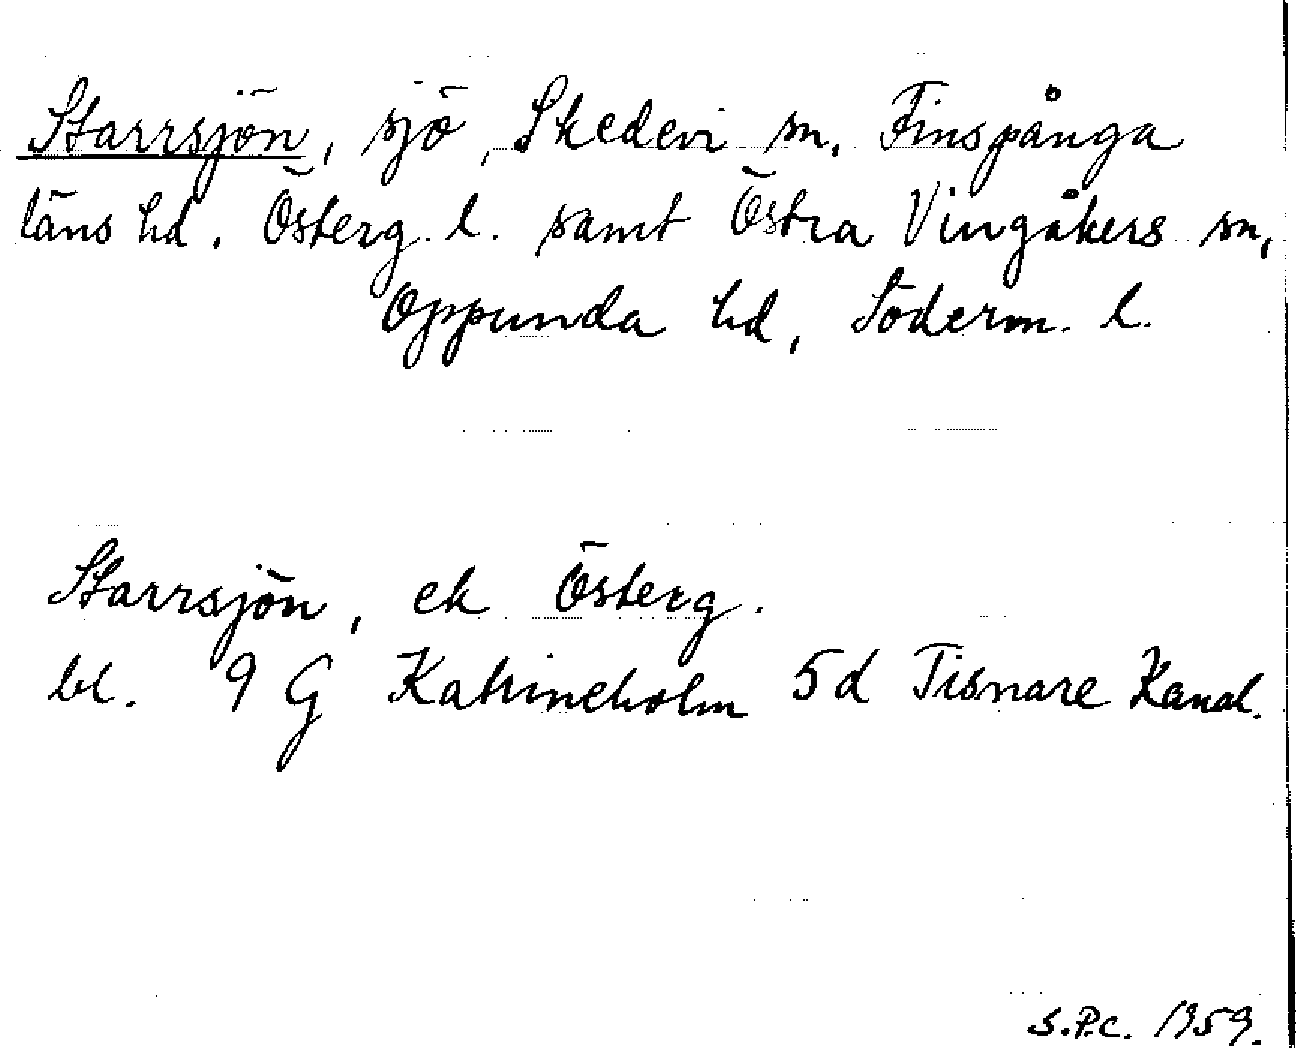 Starrsjön, sjö, Skedevi sn, Finspånga
läns hd. Österg. l. samt Östra Vingåkers sn,
Oppunda hd, Söderm. l.
Starrsjön, ek Österg.
bl. 9 G Katrineholm 5d Tisnare Kanal.
S.P.C. 1959.